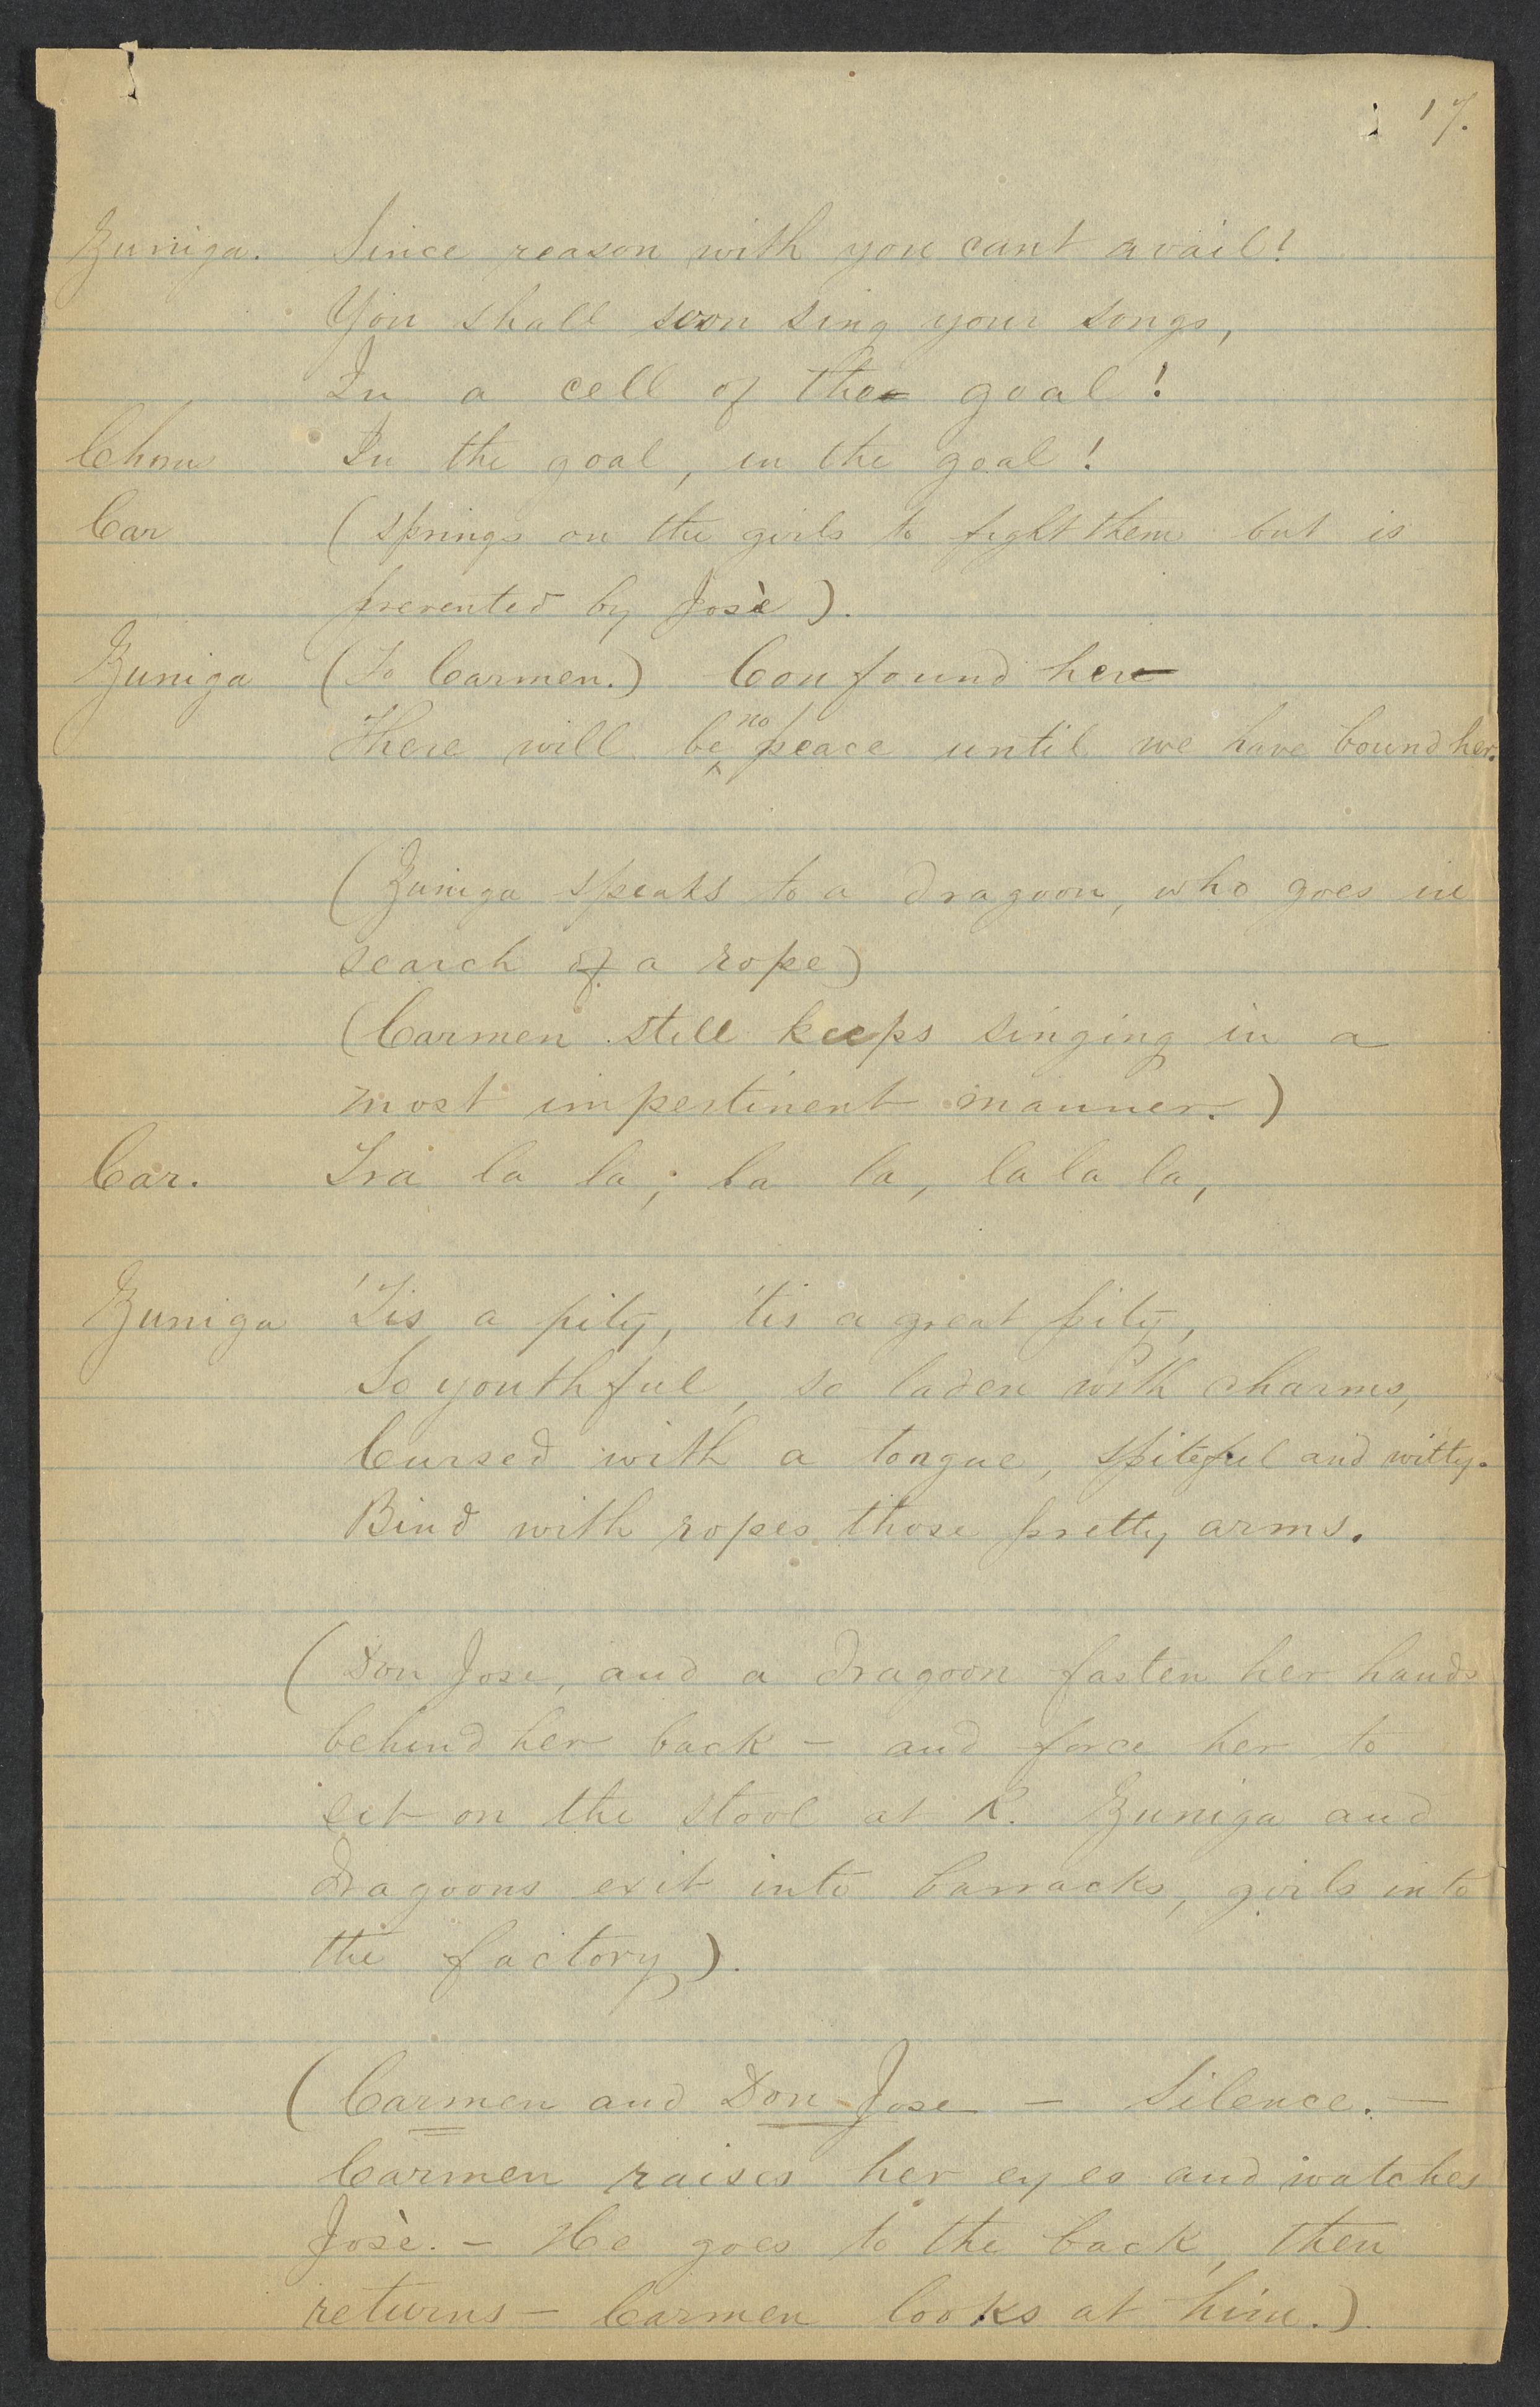 17.
Zuniga. Since reason with you cant avail!
You shall soon sing your songs,
In a cell of the goal!
Chorus In the goal, in the goal!
Car (springs on the girls to fight them but is
prevented by Josè).
Zuniga (To Carmen.) Confound her
There will be no peace until we have bound her.
(Zuniga speaks to a dragoon, who goes in
search of a rope)
(Carmen still keeps singing in a
most impertinent manner.)
Car. Tra la la; la la, la la la,
Zuniga 'Tis a pity, 'tis a great pity,
So youthful, so laden with charms,
Cursed with a tongue, spiteful and witty.
Bind with ropes those pretty arms.
(Don Jose, and a dragoon fasten her hands
behind her back – and force her to
sit on the stool at R. Zuniga and
dragoons exit into barracks, girls into
the factory).
(Carmen and Don Jose – Silence. –
Carmen raises her eyes and watches
Josè. – He goes to the back, then
returns – Carmen looks at him.)